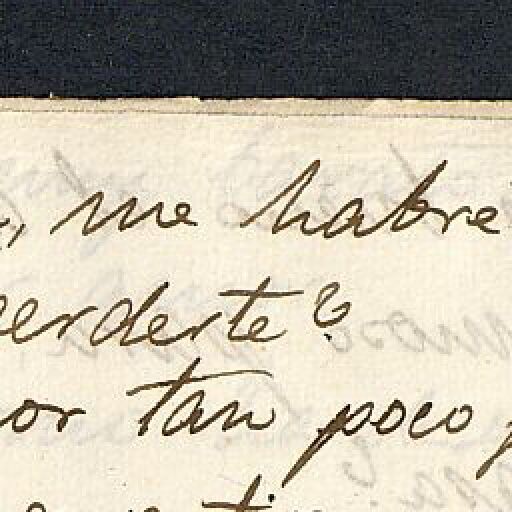 , me habre
erderte?
or tan poco p